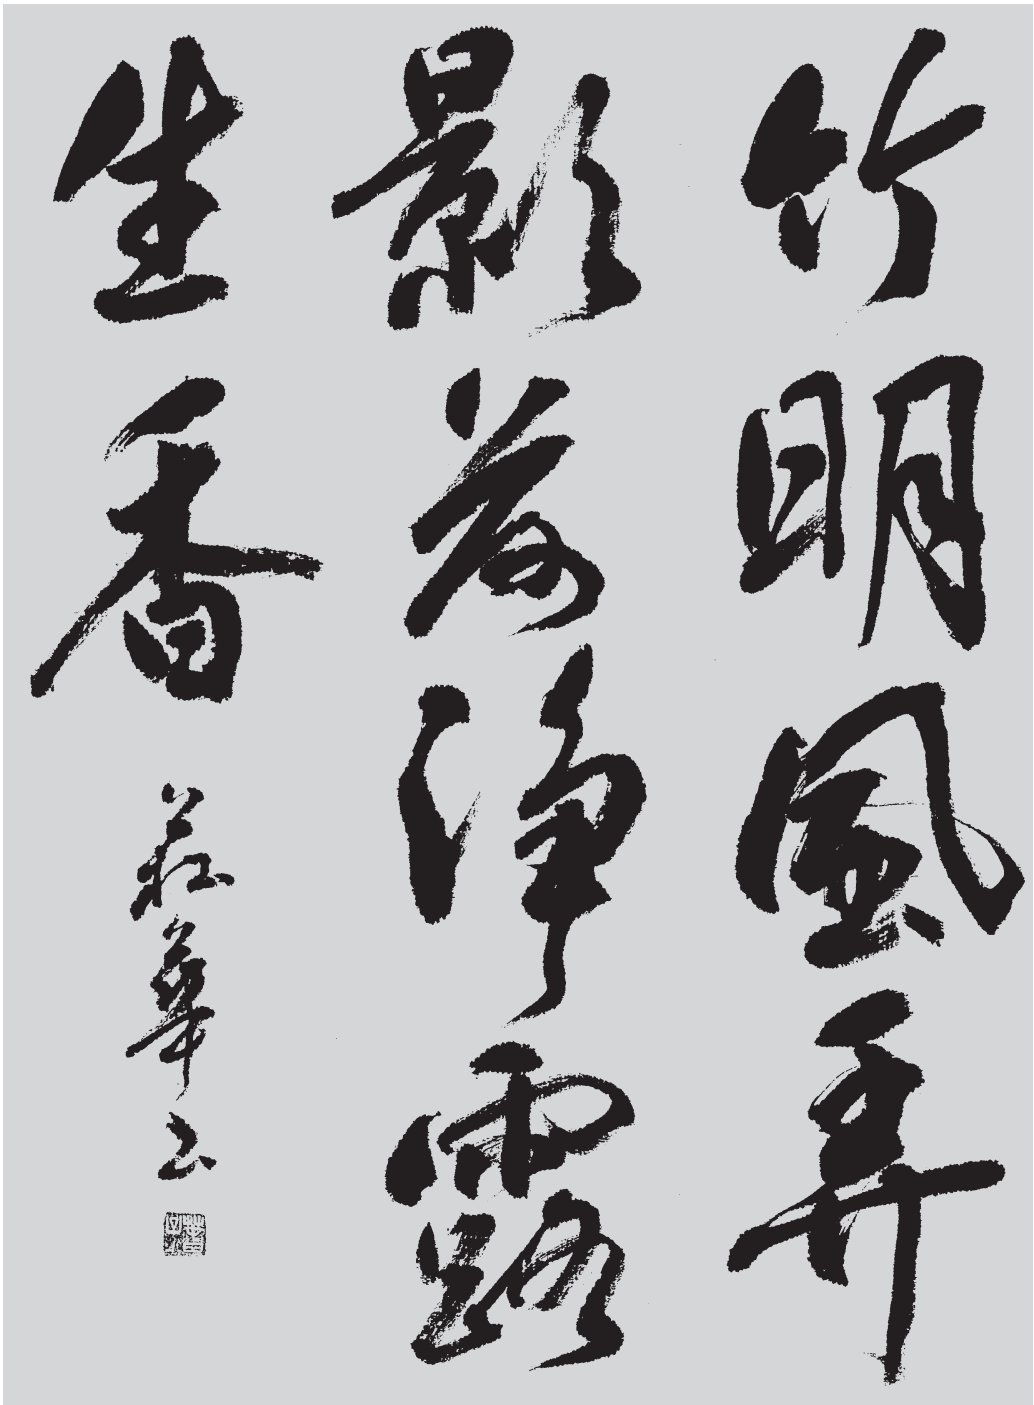 竹明風弄
影荷淨露
生香
莊華書